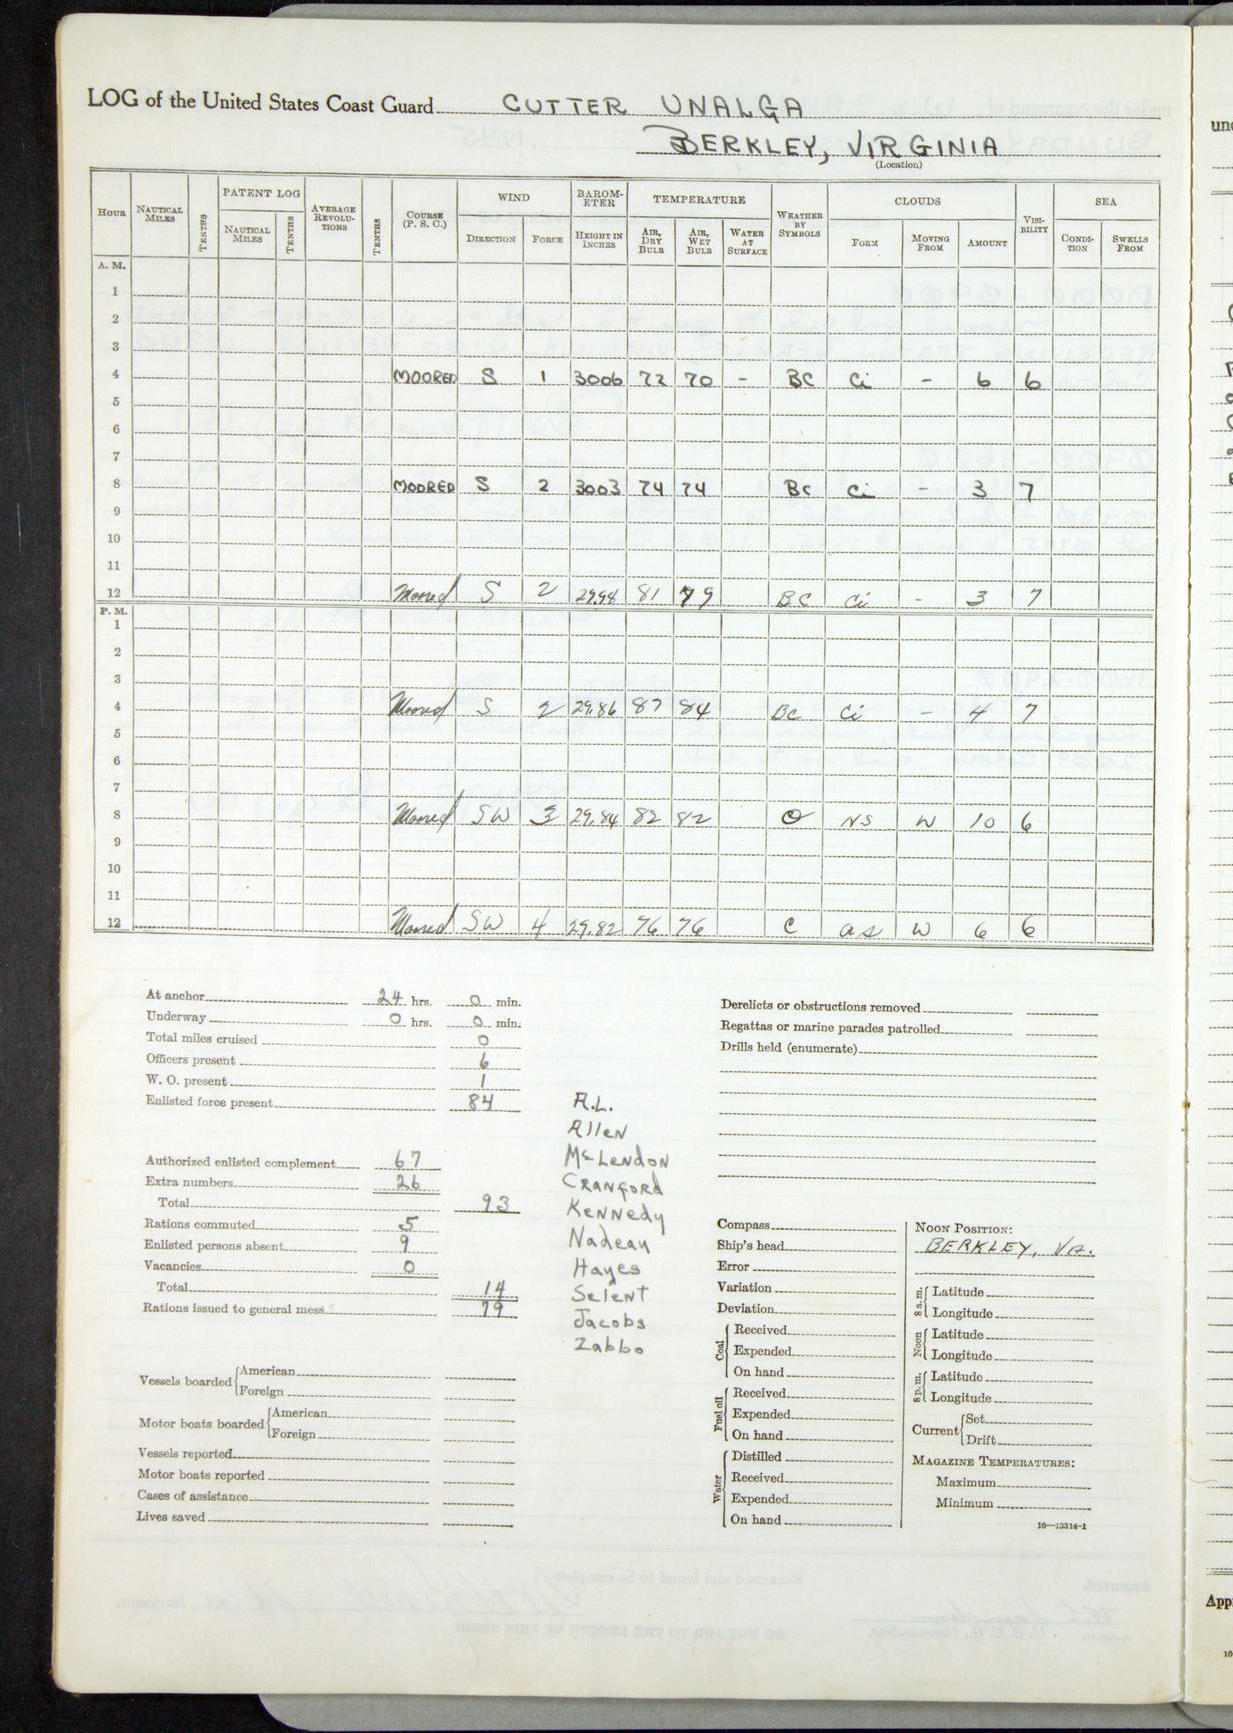 LOG of the United States Coast Guard CUTTER UNALGA
BERKLEY, VIRGINIA
(Location)
HOUR NAUTICAL MILES TENTHS PATENT LOG NAUTICAL MILES TENTHS AVERAGE REVOLU-TIONS TENTHS COURSE (P. S. C.) WIND DIRECTION FORCE BAROM-ETER HEIGHT IN INCHES TEMPERATURE AIR, DRY BULB AIR, WET BULB WATER AT SURFACE WEATHER BY SYMBOLS CLOUDS FORM MOVING FROM AMOUNT VISI-BILITY SEA CONDI-TION SWELLS FROM
A. M.
1
2
3
4 MOORED S 1 3006 72 70 - BC Ci - 6 6
5
6
7
8 MOORED S 2 3003 74 74 BC Ci - 3 7
9
10
11
12 Moored S 2 29.98 81 79 BC Ci - 3 7
P. M.
1
2
3
4 Moored S 2 29.86 87 84 BC Ci - 4 7
5
6
7
8 Moored SW 3 29.84 82 82 O NS W 10 6
9
10
11
12 Moored SW 4 29.82 76 76 C as W 6 6
At anchor 24 hrs. 0 min.
Underway 0 hrs. 0 min.
Total miles cruised 0
Officers present 6
W. O. present 1
Enlisted force present 84
Authorized enlisted complement 67
Extra numbers 26
Total 93
Rations commuted 5
Enlisted persons absent 9
Vacancies 0
Total 14
Rations issued to general mess 79
Vessels boarded American
Foreign
Motor boats boarded American
Foreign
Vessels reported
Motor boats reported
Cases of assistance
Lives saved
A.L.
Allen
McLendon
Cranford
Kennedy
Nadeau
Hayes
Selent
Jacobs
Zabbo
Derelicts or obstructions removed
Regattas or marine parades patrolled
Drills held (enumerate)
Compass
Ship's head
Error
Variation
Deviation
Coal Received
Expended
On hand
Fuel oil Received
Expended
On hand
Water Distilled
Received
Expended
On hand
NOON POSITION:
BERKLEY, VA.
8 a. m. Latitude
Longitude
Noon Latitude
Longitude
8 p. m. Latitude
Longitude
Current Set
Drift
MAGAZINE TEMPERATURES:
Maximum
Minimum
16—13314-1